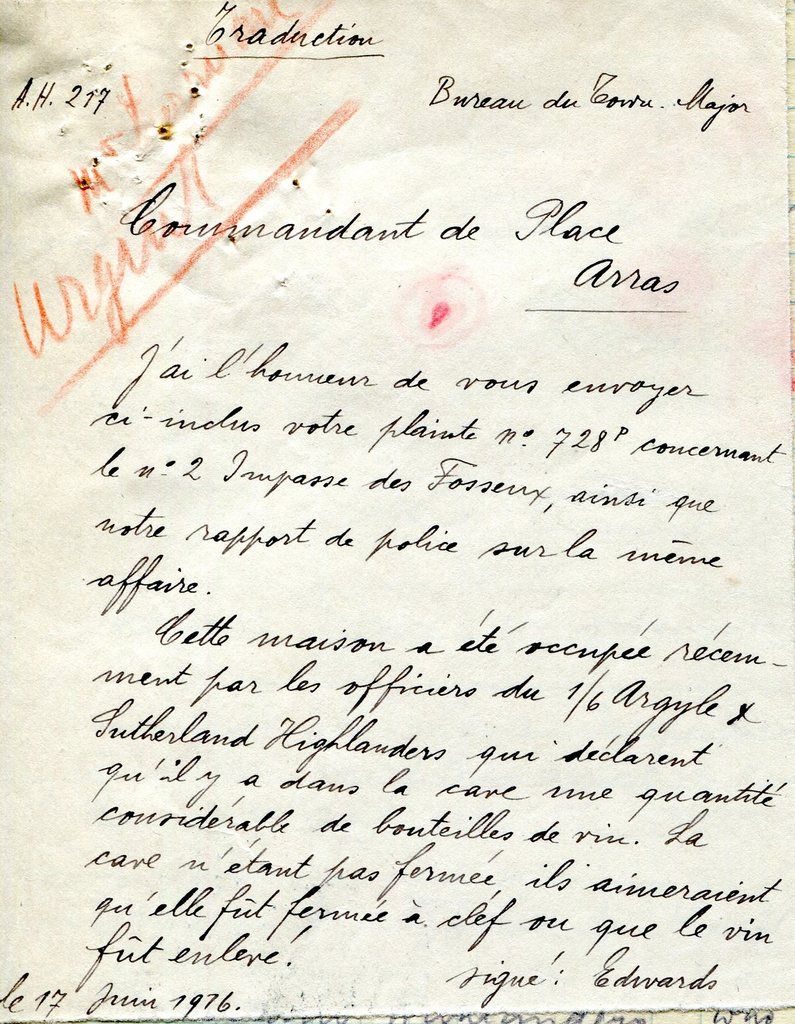 Traduction
A.H. 217
Bureau du Town-Major
Urgent
Commandant de Place
Arras
J'ai l'honneur de vous envoyer
ci-inclus votre plainte n° 728P concernant
le n° 2 Impasse des Fosseux, ainsi que
notre rapport de police sur la même
affaire.
Cette maison a été occupée récem-
ment par les officiers du 1/6 Argyle &
Sutherland Highlanders qui déclarent
qu'il y a dans la cave une quantité
considérable de bouteilles de vin. La
cave n'étant pas fermée, ils aimeraient
qu'elle fût fermée à clef ou que le vin
fût enlevé.
signé : Edwards
le 17 Juin 1916.